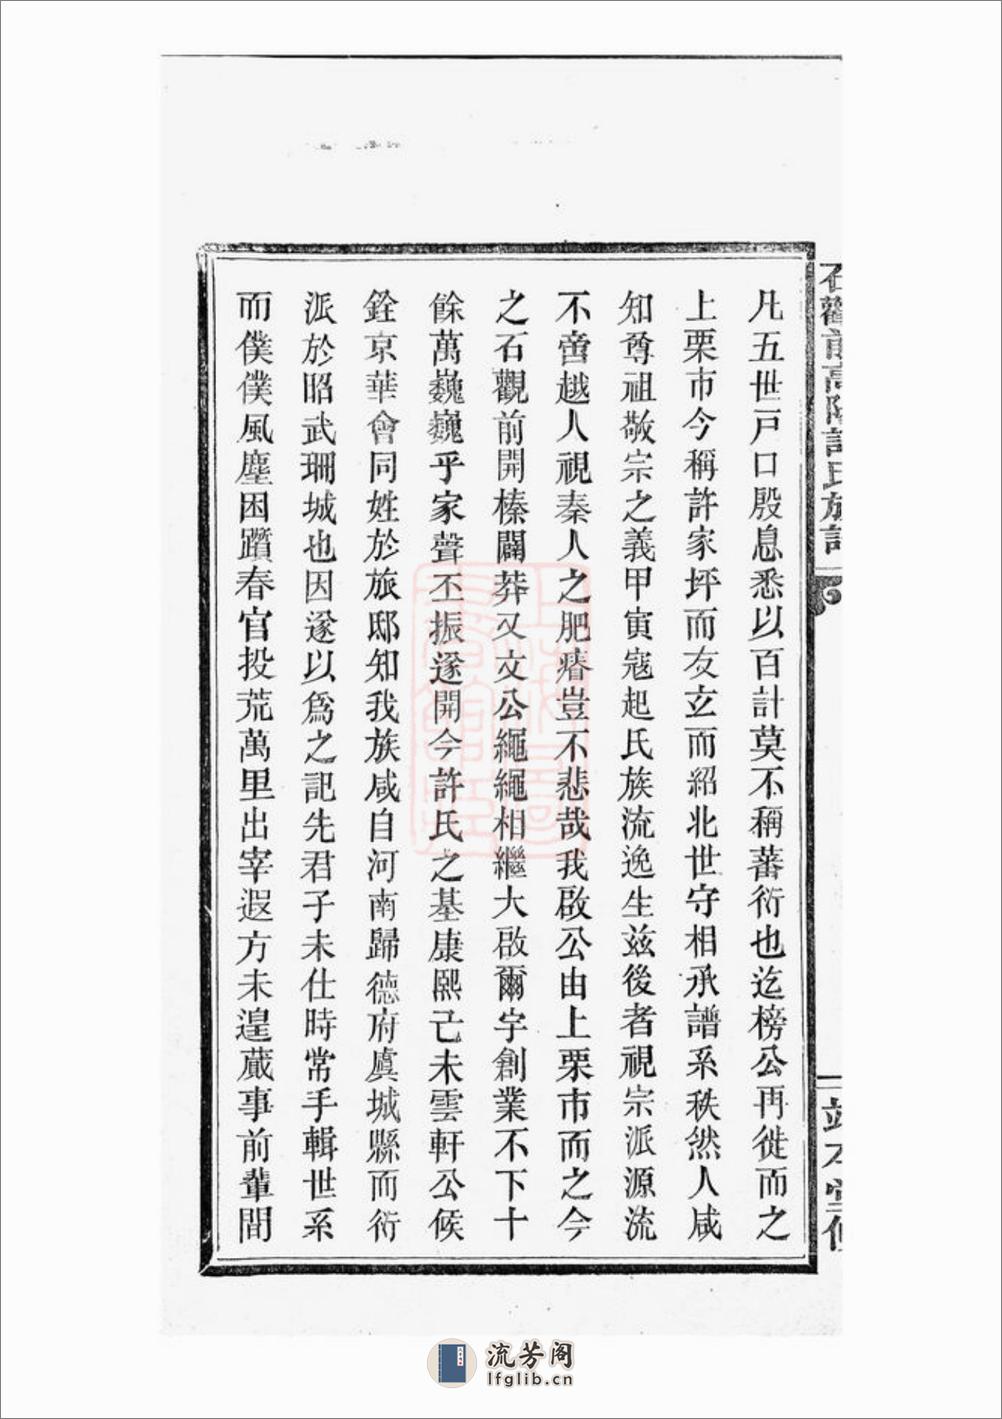 凡五世戸口殷息悉以百計莫不稱蕃衍也迄榜公再徙而之
上栗市今稱許家坪而友玄而紹北世守相承譜系秩然人咸
知尊祖敬宗之義甲寅寇起氏族流逸生兹後者視宗派源流
不啻越人視秦人之肥瘠豈不悲哉我啟公由上栗市而之今
之石觀前開榛闢莽又文公繩繩相繼大啟爾宇創業不下十
餘萬巍巍乎家聲丕振遂開今許氏之基康熙己未雲軒公候
銓京華會同姓於旅邸知我族咸自河南歸德府虞城縣而衍
派於昭武珊城也因遂以為之記先君子未仕時常手輯世系
而僕僕風塵困躓春官投荒萬里出宰遐方未遑蕆事前輩間
流芳阁
lfglib.cn